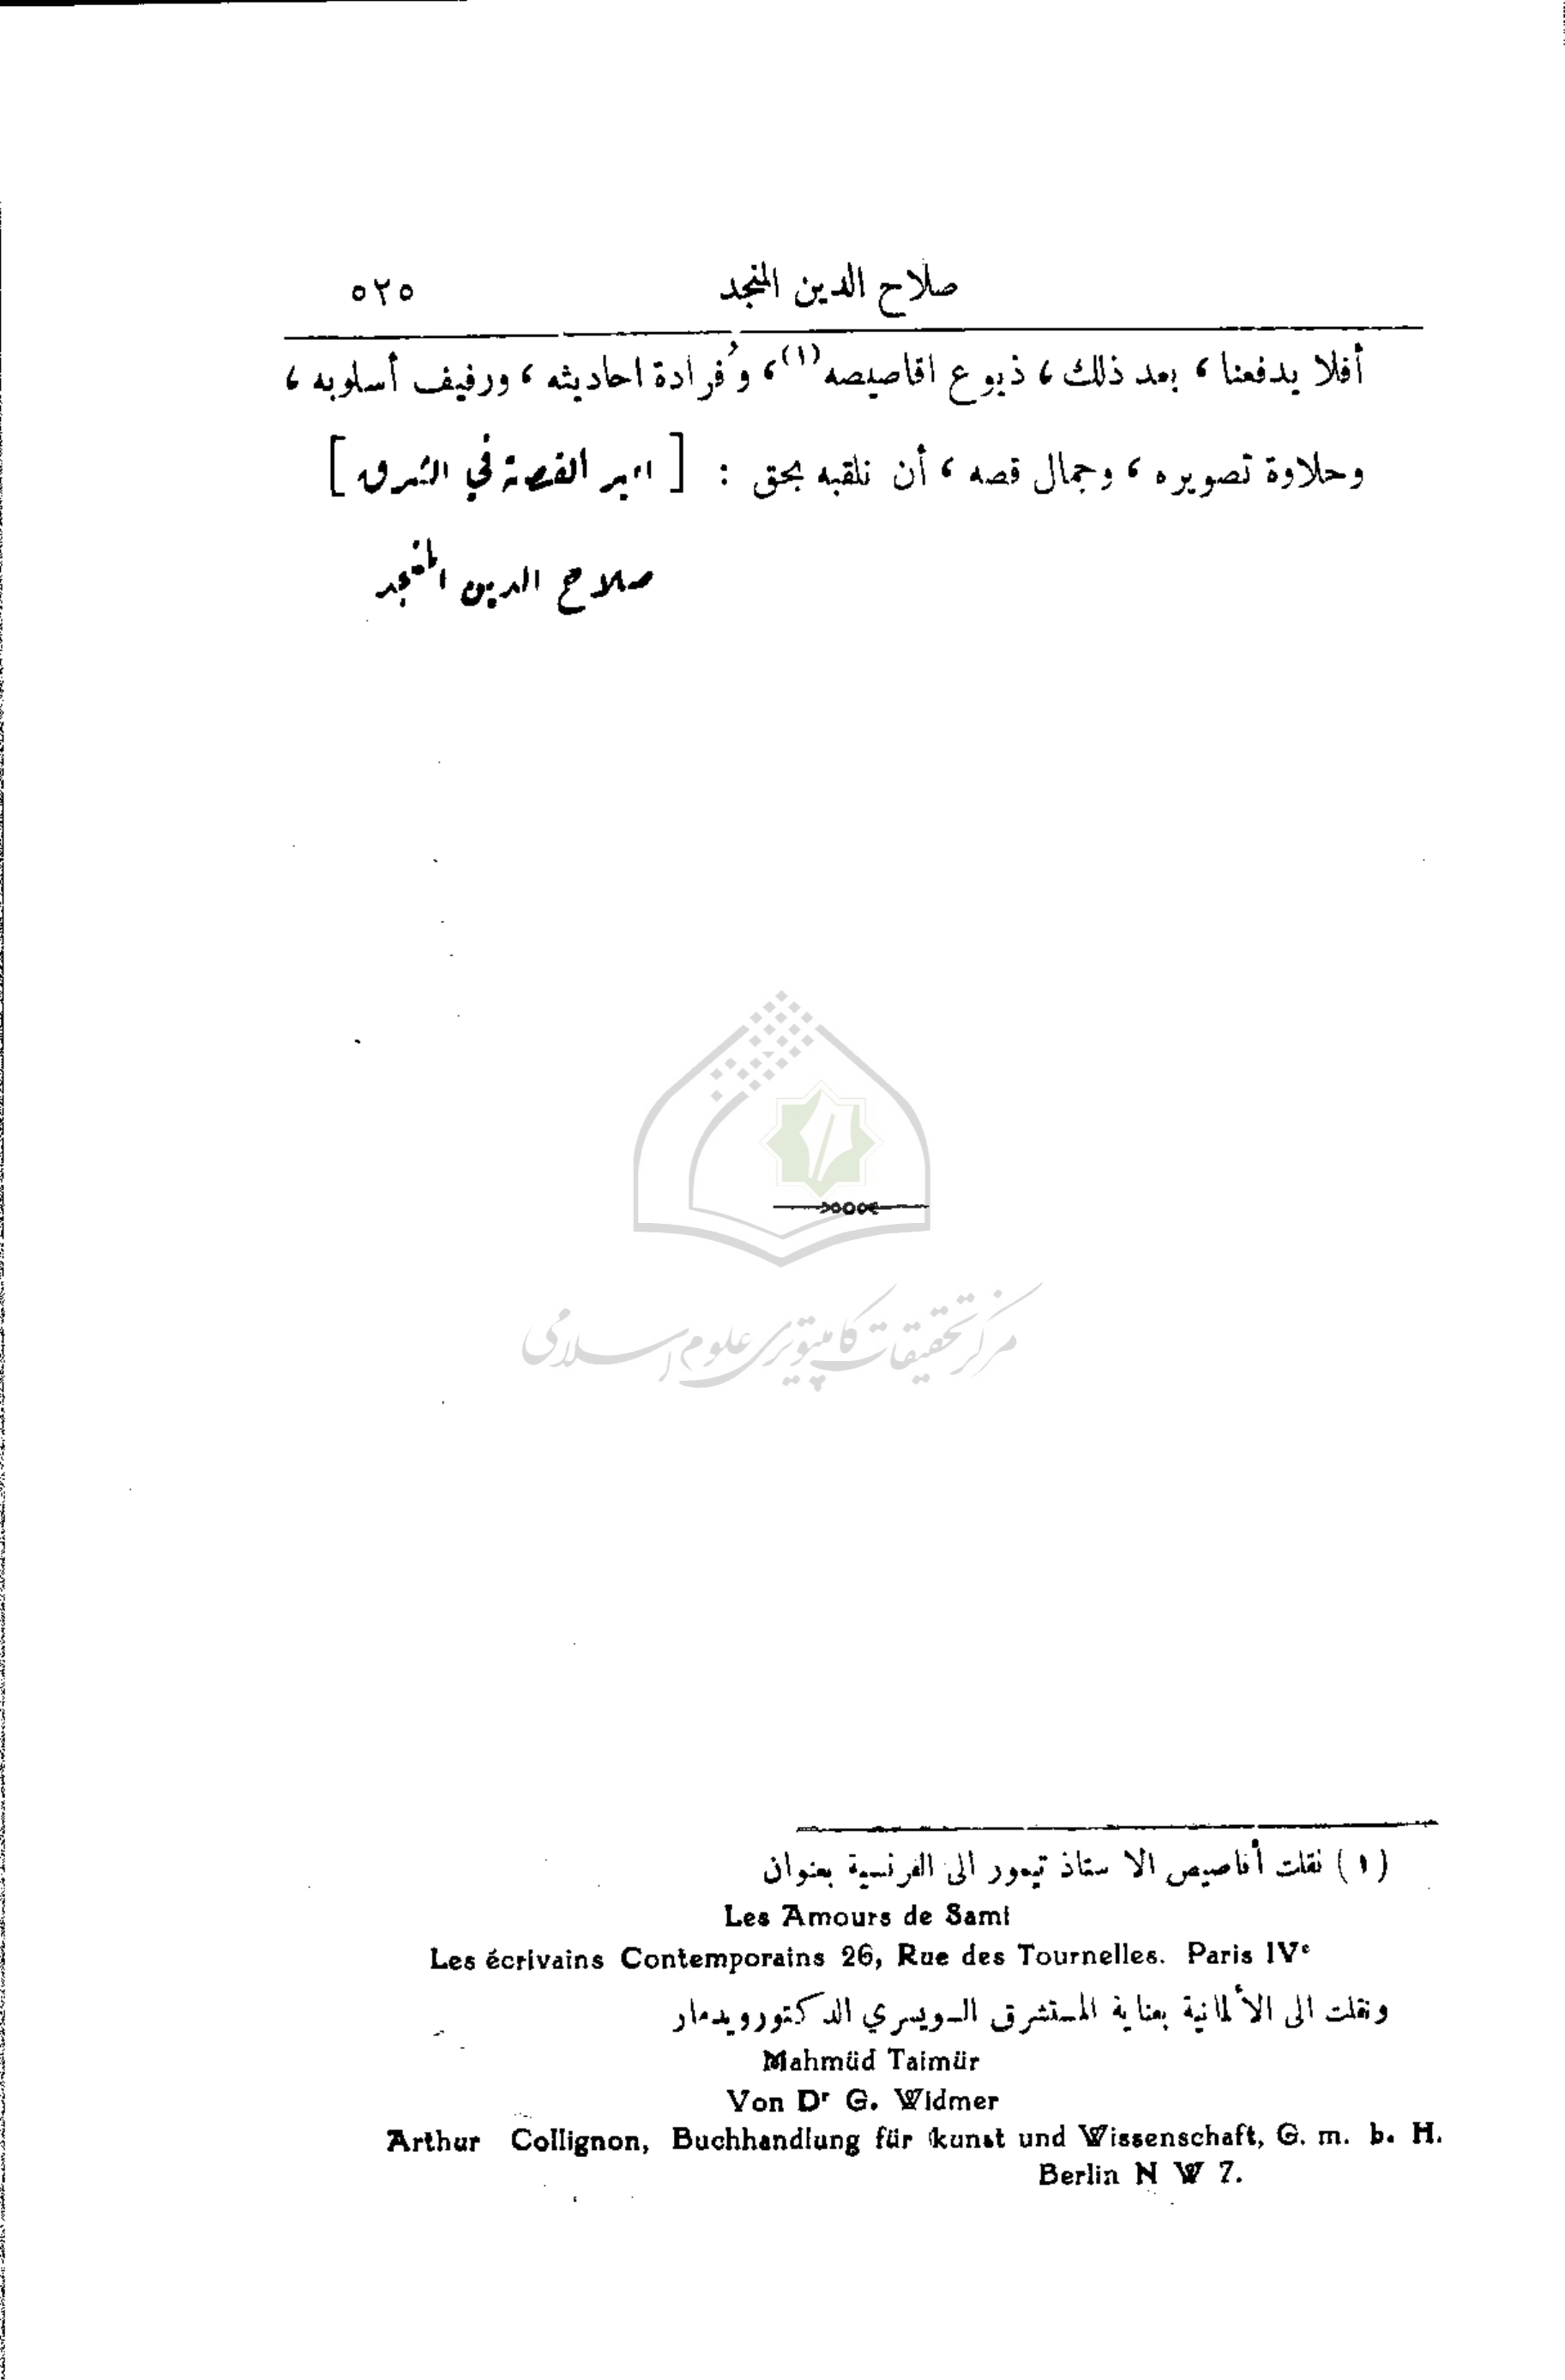 صلاح الدين المنجد ٥٢٥
أفلا يدفعنا ، بعد ذلك ، ذيوع اقاصيصه (١) ، وفُرادة احاديثه ، ورفيف أسلوبه ،
وحلاوة تصويره ، وجمال قصه ، أن نلقبه بحق : [ امير القصة في الشرق ]
صلاح الدين المنجد
مركز تحقيقات كامپيوتري علوم اسلامي
(١) نقلت أقاصيص الاستاذ تيمور الى الفرنسية بعنوان
Les Amours de Sami
Les écrivains Contemporains 26, Rue des Tournelles. Paris IVe
ونقلت الى الألمانية بعناية المستشرق السويسري الدكتور ويدمار
Mahmüd Taimür
Von Dr G. Widmer
Arthur Collignon, Buchhandlung für kunst und Wissenschaft, G. m. b. H.
Berlin N W 7.